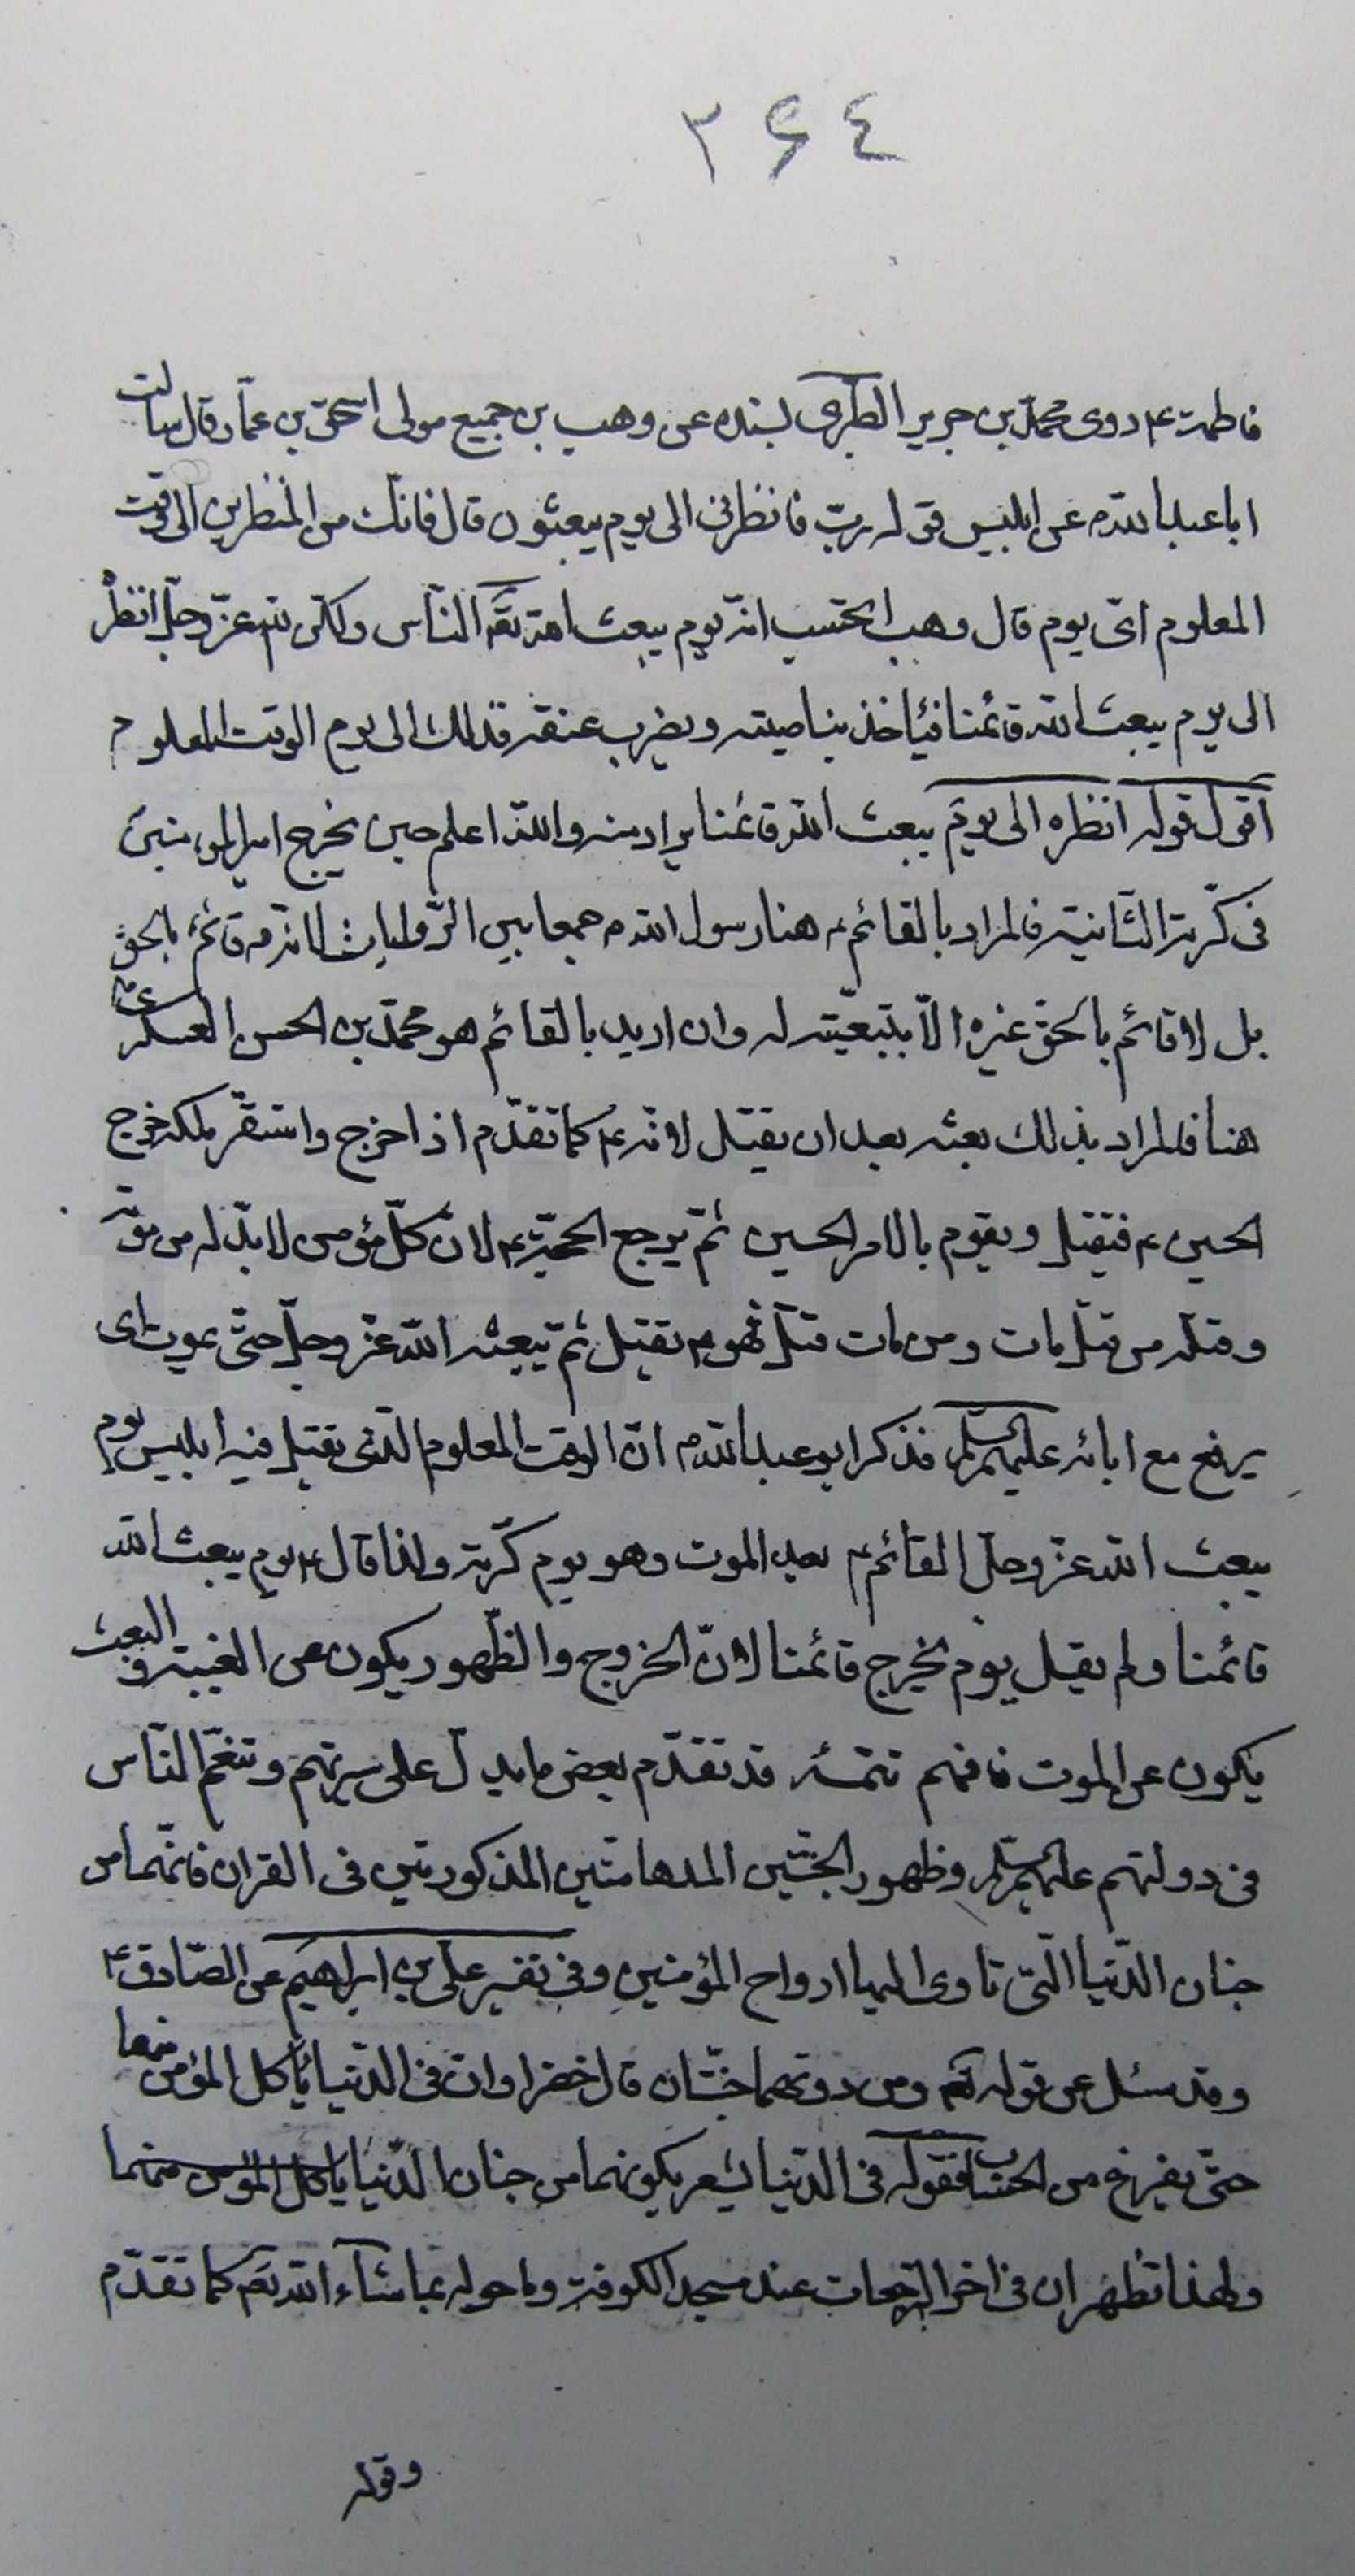 ٣۶٤
فاطمة ع روى محمّد بن جرير الطبرى بسنده عن وهب بن جميع مولى اسحق بن عمّار قال سالت
ابا عبد الله ع عن ابليس قوله ربّ فانظرنى الى يوم يبعثون قال فانّك من المنظرين الى وقت
المعلوم اىّ يوم قال وهب اتحتسب انّه يوم يبعث الله تعالى النّاس ولكن الله عزّ وجلّ انظره
الى يوم يبعث الله قائمنا فيأخذ بناصيته ويضرب عنقه فذلك الى يوم الوقت المعلوم
اقول قوله انظره الى يوم يبعث الله قائمنا يراد منه والله اعلم حين يخرج امير المؤمنين
فى كرّته الثّانية فالمراد بالقائم ع هنا رسول الله ص جمعا بين الرّوايات لانه ص قائم بالحق
بل لا قائم بالحق غيره الّا بتبعيّته له وان اريد بالقائم هو محمّد بن الحسن العسكرى ع
هنا فالمراد بذلك بعثه بعد ان يقتل لانه ع كما تقدّم اذا خرج واستقرّ ملكه خرج
الحسين ع فيقتل ويقوم بالامر الحسين ثمّ يرجع الحجّة ع لانّ كلّ مؤمن لا بدّ له من موتة
وقتله من قتل مات ومن مات قتل فهو ع يقتل ثمّ يبعثه الله عزّ وجلّ حتّى يموت اى
يرفع مع ابائه عليهم السّلام فذكر ابو عبد الله ع انّ الوقت المعلوم الّذى يقتل فيه ابليس يوم
يبعث الله عزّ وجلّ القائم ع بعد الموت وهو يوم كرّته ولذا قال ع يوم يبعث الله
قائمنا ولم يقل يوم يخرج قائمنا لانّ الخروج والظّهور يكون عن الغيبة والبعث
يكون عن الموت فافهم تتمّة قد تقدّم بعض ما يدلّ على سيرتهم وتنعّم النّاس
فى دولتهم عليهم السّلام وظهور الجنّتين المدهامتين المذكورتين فى القران فانّهما من
جنان الدّنيا الّتى تاوى اليها ارواح المؤمنين وفى تفسير علىّ بن ابراهيم عن الصّادق ع
وقد سئل عن قوله تعالى ومن دونهما جنّتان قال خضراوان فى الدّنيا يأكل المؤمن منهما
حتّى يفرغ من الحساب فقوله فى الدّنيا يشعر بكونهما من جنان الدّنيا ياكل المؤمن منهما
ولهذا تظهران فى اخر الرّجعات عند مسجد الكوفة وما حوله بما شاء الله تعالى كما تقدّم
وقوله